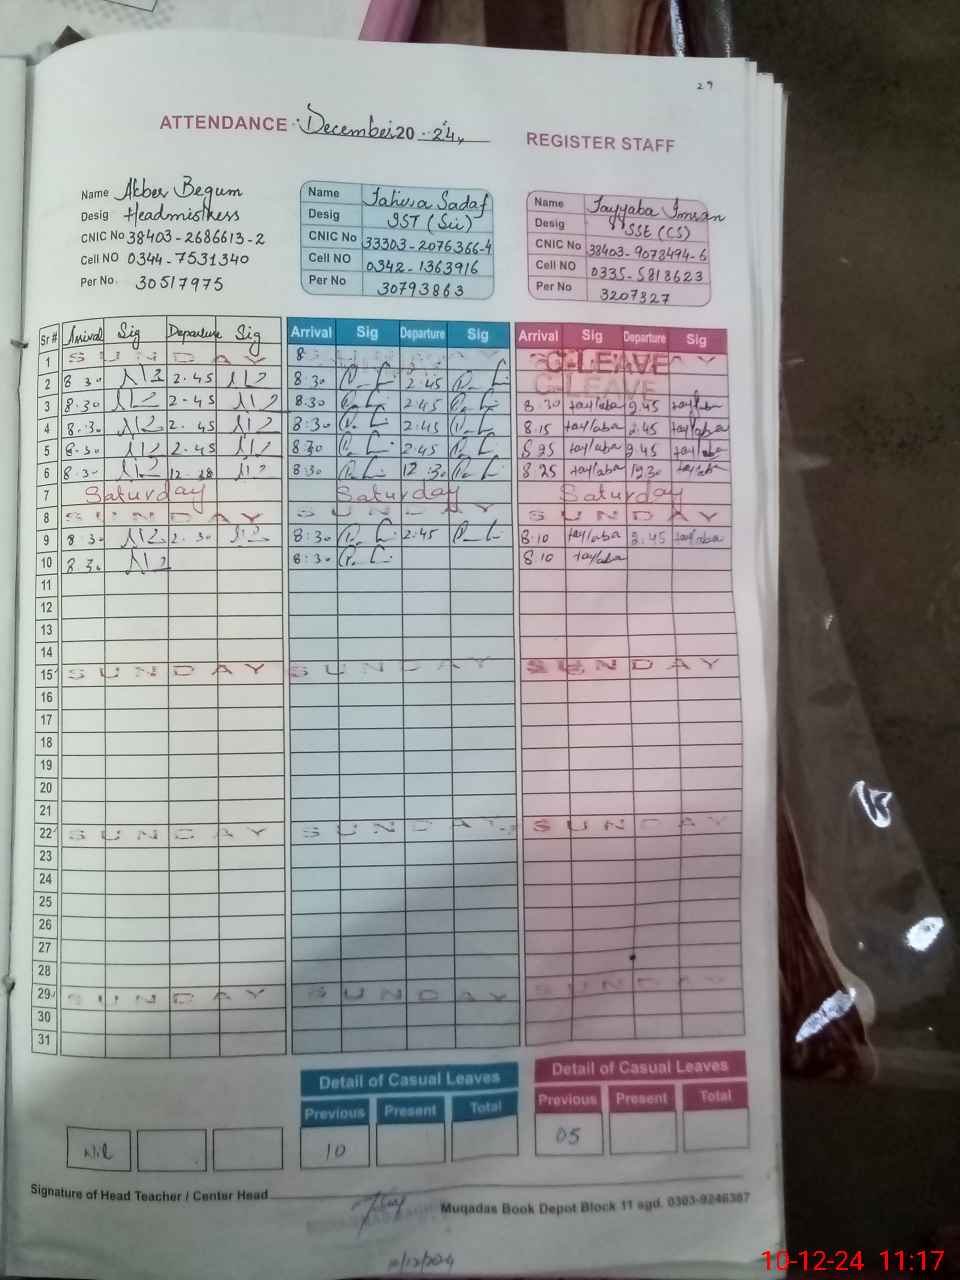 29
ATTENDANCE December 2024, REGISTER STAFF
Name Akber Begum
Desig Headmistress
CNIC No 38403-2686613-2
Cell NO 0344-7531340
Per No. 30517975
Name Tahira Sadaf
Desig SST (Sci)
CNIC No 33303-2076366-4
Cell NO 0342-1363916
Per No 30793863
Name Tayyaba Imran
Desig SSE (CS)
CNIC No 38403-9073494-6
Cell NO 0335-5818623
Per No 3207327
Sr # Arrival Sig Departure Sig Arrival Sig Departure Sig Arrival Sig Departure Sig
1 SUNDAY 8 SUNDAY C-LEAVE
2 8.30 2.45 8:30 2:45 C-LEAVE
3 8.30 2.45 8:30 2:45 8.30 tayyaba 2.45 tayyaba
4 8.30 2.45 8:30 2:45 8.15 tayyaba 2.45 tayyaba
5 8.30 2.45 8:30 2:45 8.25 tayyaba 2.45 tayyaba
6 8.30 12.30 8:30 12:30 8.25 tayyaba 12.30 tayyaba
7 Saturday Saturday Saturday
8 SUNDAY SUNDAY SUNDAY
9 8.30 2.30 8:30 2:45 8.10 tayyaba 2.45 tayyaba
10 8.30 8:30 8.10 tayyaba
11
12
13
14
15 SUNDAY SUNDAY SUNDAY
16
17
18
19
20
21
22 SUNDAY SUNDAY SUNDAY
23
24
25
26
27
28
29 SUNDAY SUNDAY SUNDAY
30
31
Detail of Casual Leaves Detail of Casual Leaves
Previous Present Total Previous Present Total
Nil 10 05
Signature of Head Teacher / Center Head
Muqadas Book Depot Block 11 sgd. 0303-9246387
10/12/2024
10-12-24 11:17